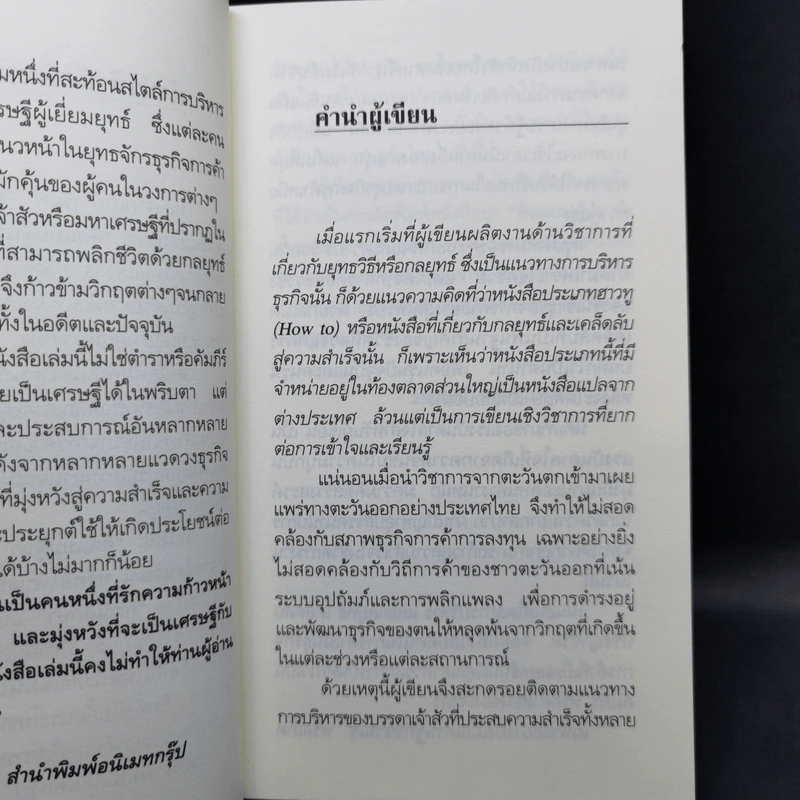 มหนึ่งที่สะท้อนสไตล์การบริหาร
รษฐีผู้เยี่ยมยุทธ์ ซึ่งแต่ละคน
นวหน้าในยุทธจักรธุรกิจการค้า
มักคุ้นของผู้คนในวงการต่างๆ
จ้าสัวหรือมหาเศรษฐีที่ปรากฏใน
ที่สามารถพลิกชีวิตด้วยกลยุทธ์
จึงก้าวข้ามวิกฤตต่างๆจนกลาย
ทั้งในอดีตและปัจจุบัน
นังสือเล่มนี้ไม่ใช่ตำราหรือคัมภีร์
ยเป็นเศรษฐีได้ในพริบตา แต่
ละประสบการณ์อันหลากหลาย
ดังจากหลากหลายแวดวงธุรกิจ
ที่มุ่งหวังสู่ความสำเร็จและความ
ะประยุกต์ใช้ให้เกิดประโยชน์ต่อ
ได้บ้างไม่มากก็น้อย
นเป็นคนหนึ่งที่รักความก้าวหน้า
และมุ่งหวังที่จะเป็นเศรษฐีกับ
นังสือเล่มนี้คงไม่ทำให้ท่านผู้อ่าน
สำนำพิมพ์อนิเมทกรุ๊ป
คำนำผู้เขียน
เมื่อแรกเริ่มที่ผู้เขียนผลิตงานด้านวิชาการที่
เกี่ยวกับยุทธวิธีหรือกลยุทธ์ ซึ่งเป็นแนวทางการบริหาร
ธุรกิจนั้น ก็ด้วยแนวความคิดที่ว่าหนังสือประเภทฮาวทู
(How to) หรือหนังสือที่เกี่ยวกับกลยุทธ์และเคล็ดลับ
สู่ความสำเร็จนั้น ก็เพราะเห็นว่าหนังสือประเภทนี้ที่มี
จำหน่ายอยู่ในท้องตลาดส่วนใหญ่เป็นหนังสือแปลจาก
ต่างประเทศ ล้วนแต่เป็นการเขียนเชิงวิชาการที่ยาก
ต่อการเข้าใจและเรียนรู้
แน่นอนเมื่อนำวิชาการจากตะวันตกเข้ามาเผย
แพร่ทางตะวันออกอย่างประเทศไทย จึงทำให้ไม่สอด
คล้องกับสภาพธุรกิจการค้าการลงทุน เฉพาะอย่างยิ่ง
ไม่สอดคล้องกับวิถีการค้าของชาวตะวันออกที่เน้น
ระบบอุปถัมภ์และการพลิกแพลง เพื่อการดำรงอยู่
และพัฒนาธุรกิจของตนให้หลุดพ้นจากวิกฤตที่เกิดขึ้น
ในแต่ละช่วงหรือแต่ละสถานการณ์
ด้วยเหตุนี้ผู้เขียนจึงสะกดรอยติดตามแนวทาง
การบริหารของบรรดาเจ้าสัวที่ประสบความสำเร็จทั้งหลาย